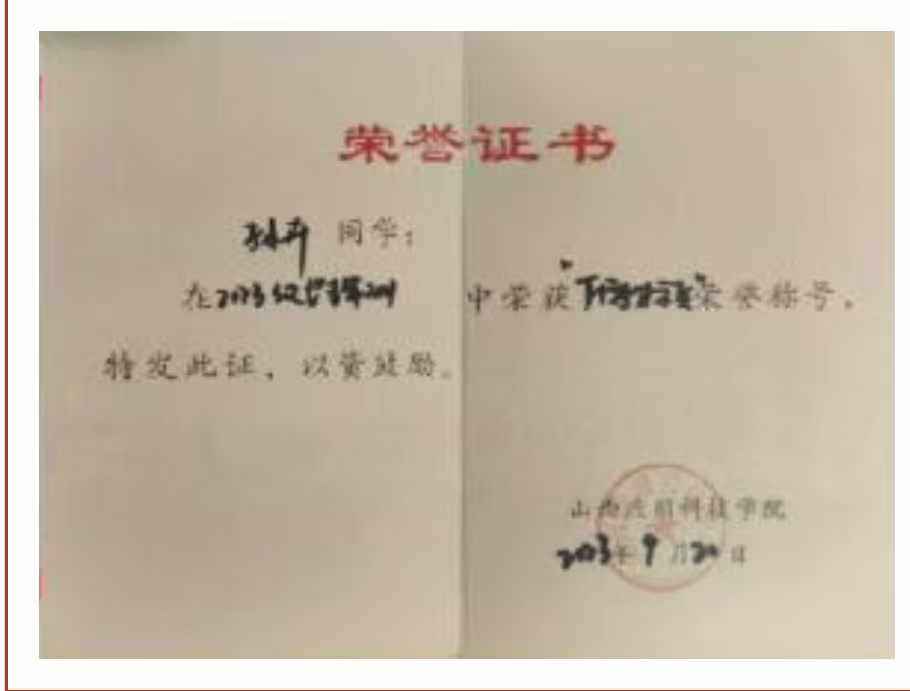 荣誉证书
同学：
在2023级学生军训中荣获“”荣誉称号。
特发此证，以资鼓励。
山西应用科技学院
2023年9月20日